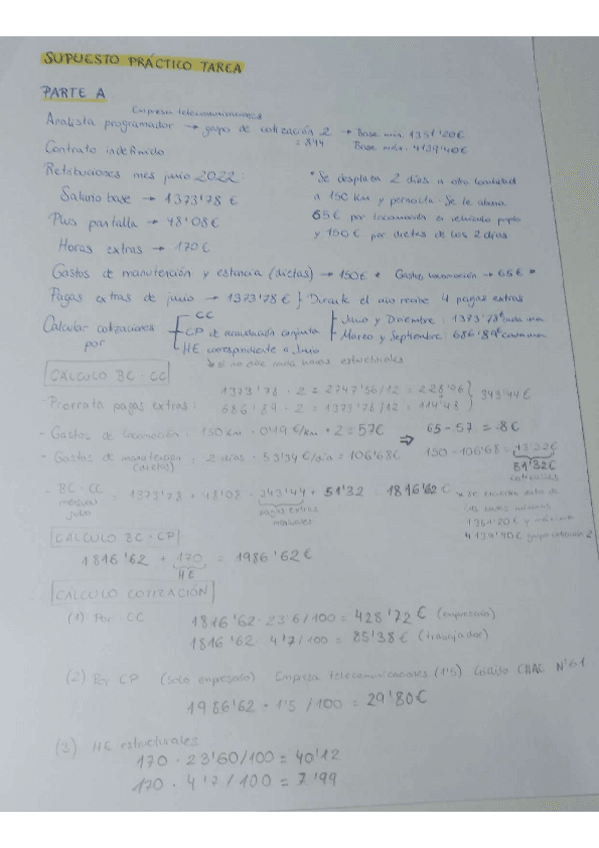 SUPUESTO PRÁCTICO TAREA
PARTE A
Empresa telecomunicaciones
Analista programador → grupo de cotización 2 → Base mín. 1351'20€
= 844 Base máx. 4139'40€
Contrato indefinido
Retribuciones mes junio 2022:
Salario base → 1373'78€
Plus pantalla → 48'08€
Horas extras → 170€
* Se desplaza 2 días a otra localidad
a 150 km y pernocta. Se le abona
65€ por locomoción en vehículo propio
y 150€ por dietas de los 2 días
Gastos de manutención y estancia (dietas) → 150€ * Gastos locomoción → 65€ *
Pagas extras de junio → 1373'78€ } Durante el año recibe 4 pagas extras
Calcular cotizaciones por
CC
CP de recaudación conjunta
HE correspondiente a Junio
Junio y Diciembre: 1373'78€ cada una
Marzo y Septiembre: 686'89€ cada una
si no dice nada horas estructurales
CÁLCULO BC-CC
- Prorrata pagas extras: 1373'78 · 2 = 2747'56/12 = 228'96 } 343'44€
686'89 · 2 = 1373'78/12 = 114'48
- Gastos de locomoción: 150km · 0'19 €/km · 2 = 57€ ⇒ 65 - 57 = 8€
- Gastos de manutención (dietas): 2 días · 53'34 €/día = 106'68€ 150 - 106'68 =
51'32€
- BC-CC mensual = 1373'78 + 48'08 + 343'44 + 51'32 = 1816'62€
pagas extras mensuales
1351'20€ y máxima
4139'40€ grupo cotización 2
CÁLCULO BC-CP
1816'62 + 170 = 1986'62€
HE
CÁLCULO COTIZACIÓN
(1) Por CC 1816'62 · 23'6/100 = 428'72€ (empresario)
1816'62 · 4'7/100 = 85'38€ (trabajador)
(2) Por CP (solo empresario) Empresa telecomunicaciones (1'5) Código CNAE Nº61
1986'62 · 1'5/100 = 29'80€
(3) HE estructurales
170 · 23'60/100 = 40'12
170 · 4'7/100 = 7'99